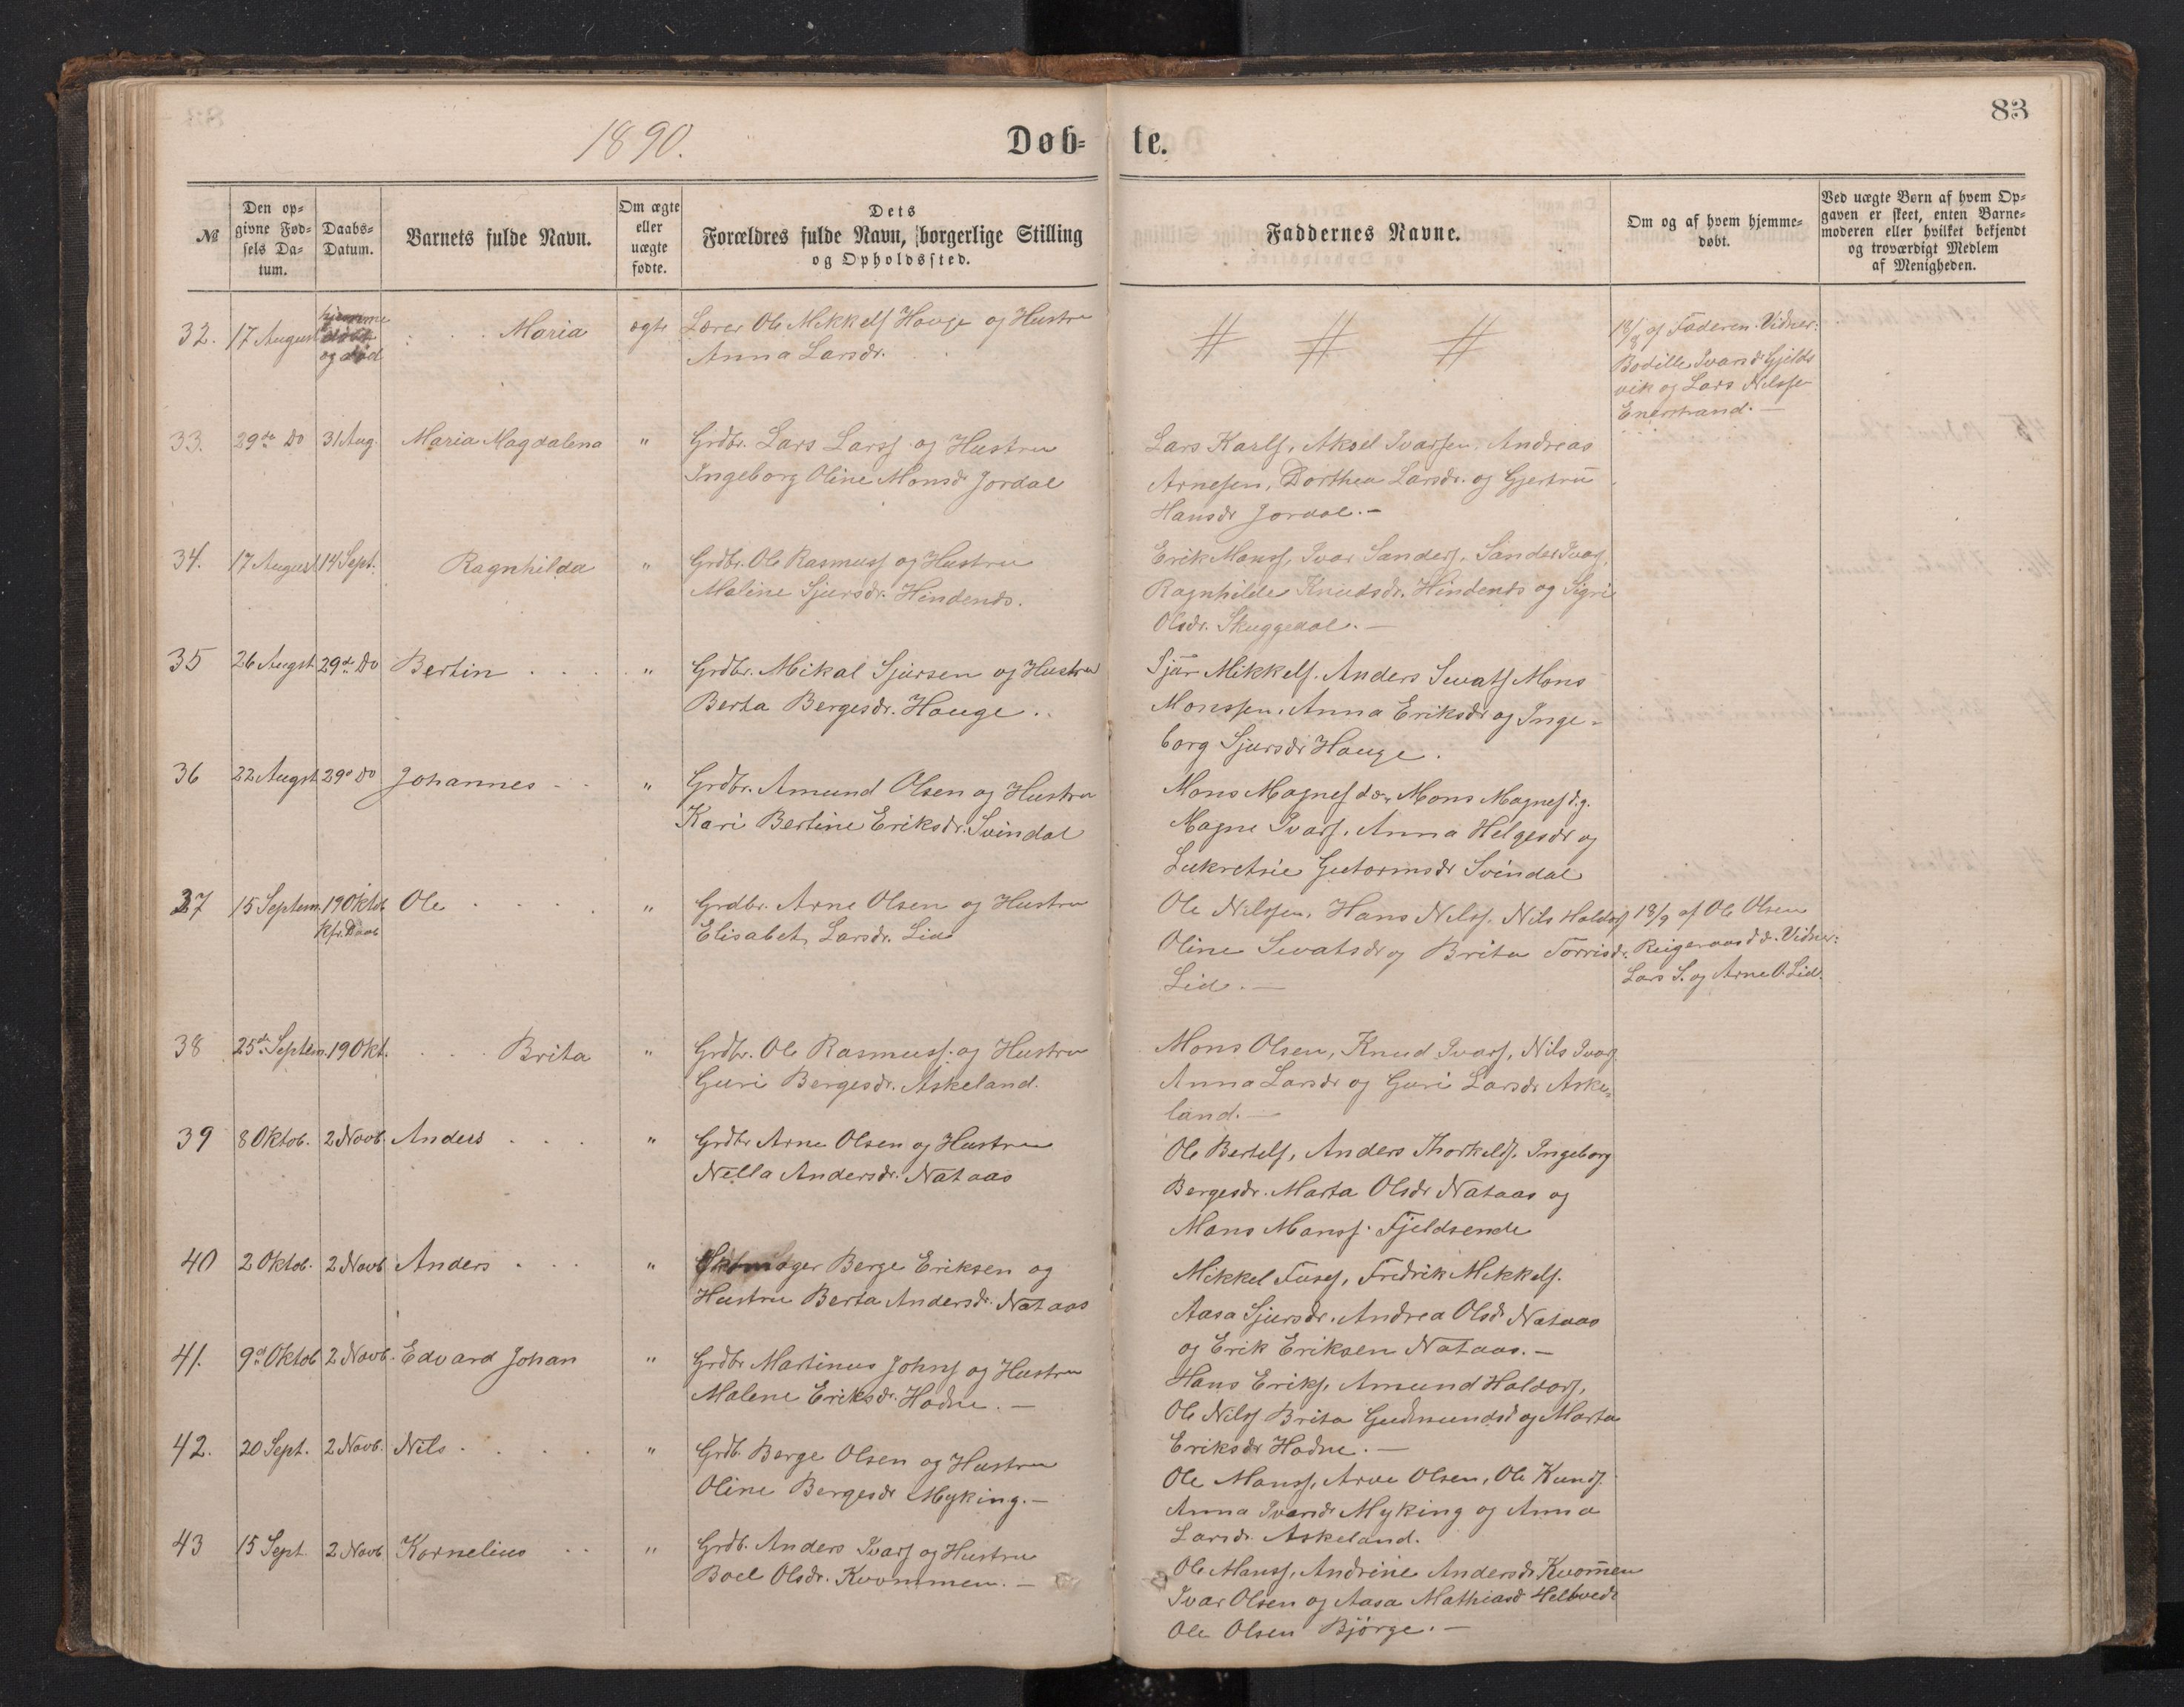 83
1890.
Døb-
te.
№
Den op-
givne Fød-
sels Da-
tum.
Daabs-
Datum.
Barnets fulde Navn.
Om ægte
eller
uægte
fødte.
Dets
Forældres fulde Navn, borgerlige Stilling
og Opholdssted.
Faddernes Navne.
Om og af hvem hjemme-
døbt.
Ved uægte Børn af hvem Op-
gaven er skeet, enten Barne-
moderen eller hvilket bekjendt
og troværdigt Medlem
af Menigheden.
32. 17 August
hjemme
døbt
og død
Maria
ægte
Lærer Ole Mikkels Hauge og Hustru
Anna Larsdr.
# # #
18/8 af Faderen. Vidner:
Bodille Ivarsdr Gjelds
vik og Lars Nilssen
Enerstrand. —
33. 29de Do 31 Aug. Maria Magdalena "
Grdbr. Lars Larss og Hustru
Ingeborg Oline Monsdr Jordal
Lars Karls, Aksel Ivarsen, Andreas
Arnesen, Dorthea Larsdr. og Gjertru
Hansdr Jordal. —
34. 17 August 14 Sept. Ragnhilda "
Grdbr. Ole Rasmuss og Hustru
Maline Sjursdr. Hindenes.
Erik Monss, Ivar Sanders, Sander Ivars,
Ragnhilde Knudsdr. Hindenes og Sigri
Olsdr. Skuggedal. —
35 26 Augst. 29de Do Bertin . . . "
Grdbr. Mikal Sjursen og Hustru
Berta Bergesdr. Hauge.
Sjur Mikkels. Anders Sevats Mons
Monssen. Anna Eriksdr og Inge-
borg Sjursdr Hauge.
36 22 Augst. 29de Do Johannes - - "
Grdbr. Amund Olsen og Hustru
Kari Bertine Eriksdr. Svindal
Mons Magnes d.æ. Mons Magnes d.y.
Magne Ivars. Anna Helgesdr og
Lukretsie Gutormsdr Svindal
37 15 Septem. 19 Oktob. Ole . . . . "
Kfr. Daab
Grdbr. Arne Olsen og Hustru
Elisabet Larsdr. Lid
Ole Nilssen, Hans Nilss, Nils Haldors
Oline Sevatsdr og Brita Torrisdr.
Lid. —
18/9 af Ole Olsen
Reigeraas d.æ. Vidner:
Lars S. og Arne O. Lid.
38 25de Septem. 19 Okt. . . . Brita "
Grdbr. Ole Rasmuss. og Hustru
Guri Bergesdr. Askeland.
Mons Olsen, Knud Ivars, Nils Ivars
Anna Larsdr og Guri Larsdr Aske-
land. —
39 8 Oktob. 2 Novb. Anders . . . "
Grdbr Arne Olsen og Hustru
Nella Andersdr. Nataas
Ole Bertels, Anders Thorkelds, Ingeborg
Bergesdr. Marta Olsdr Nataas og
Mons Monss. Fjeldsende
40 2 Oktob. 2 Novb Anders . . . "
Berge Eriksen og
Hustru Berta Andersdr. Nataas
Mikkel Tuses, Fredrik Mikkels.
Aasa Sjursdr. Andrea Olsdr Nataas
og Erik Eriksen Nataas. —
41. 9de Oktob 2 Novb. Edvard Johan "
Grdbr Martinus Johns og Hustru
Malene Eriksdr. Hodne. —
Hans Eriks, Amund Haldors,
Ole Nilss Brita Gudmundsd og Marta
Eriksdr Hodne. —
42. 20 Sept. 2 Novb. Nils . . . . "
Grdb. Berge Olsen og Hustru
Oline Bergesdr Myking. —
Ole Monss, Arve Olsen, Ole Knuds.
Anna Ivarsdr Myking og Anna
Larsdr. Askeland.
43 15 Sept. 2 Novb Kornelius . . "
Grdb. Anders Ivars og Hustru
Boel Olsdr. Kvommen. —
Ole Monss, Andrine Andersdr Kvommen
Ivar Olsen og Aasa Mathiasd Heltvedt
Ole Olsen Bjørge. —